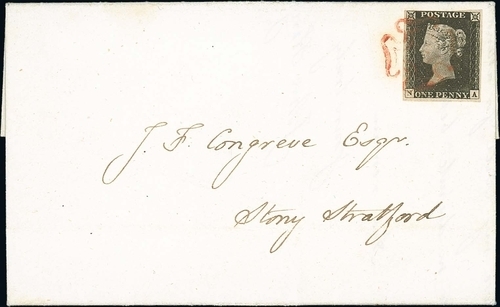 POSTAGE
N A
ONE PENNY
J. F. Congreve Esqr.
Stony Stratford